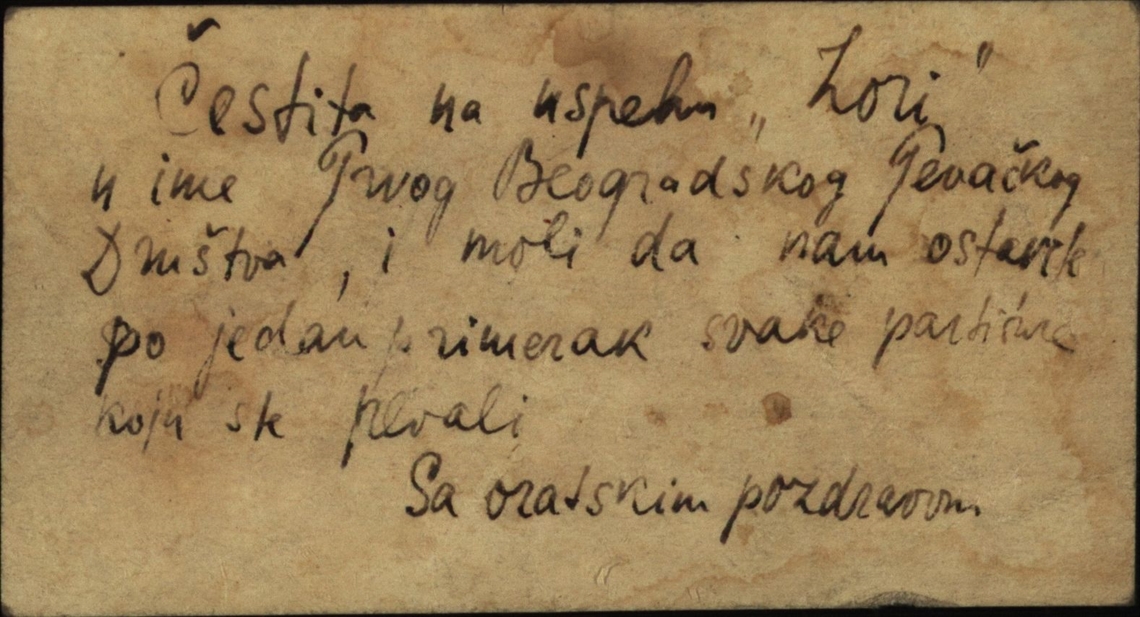 Čestita na uspehu „Zori"
u ime Prvog Beogradskog Pevačkog
Društva, i moli da nam ostavite
po jedan primerak svake partiture
koju ste pevali
Sa bratskim pozdravom